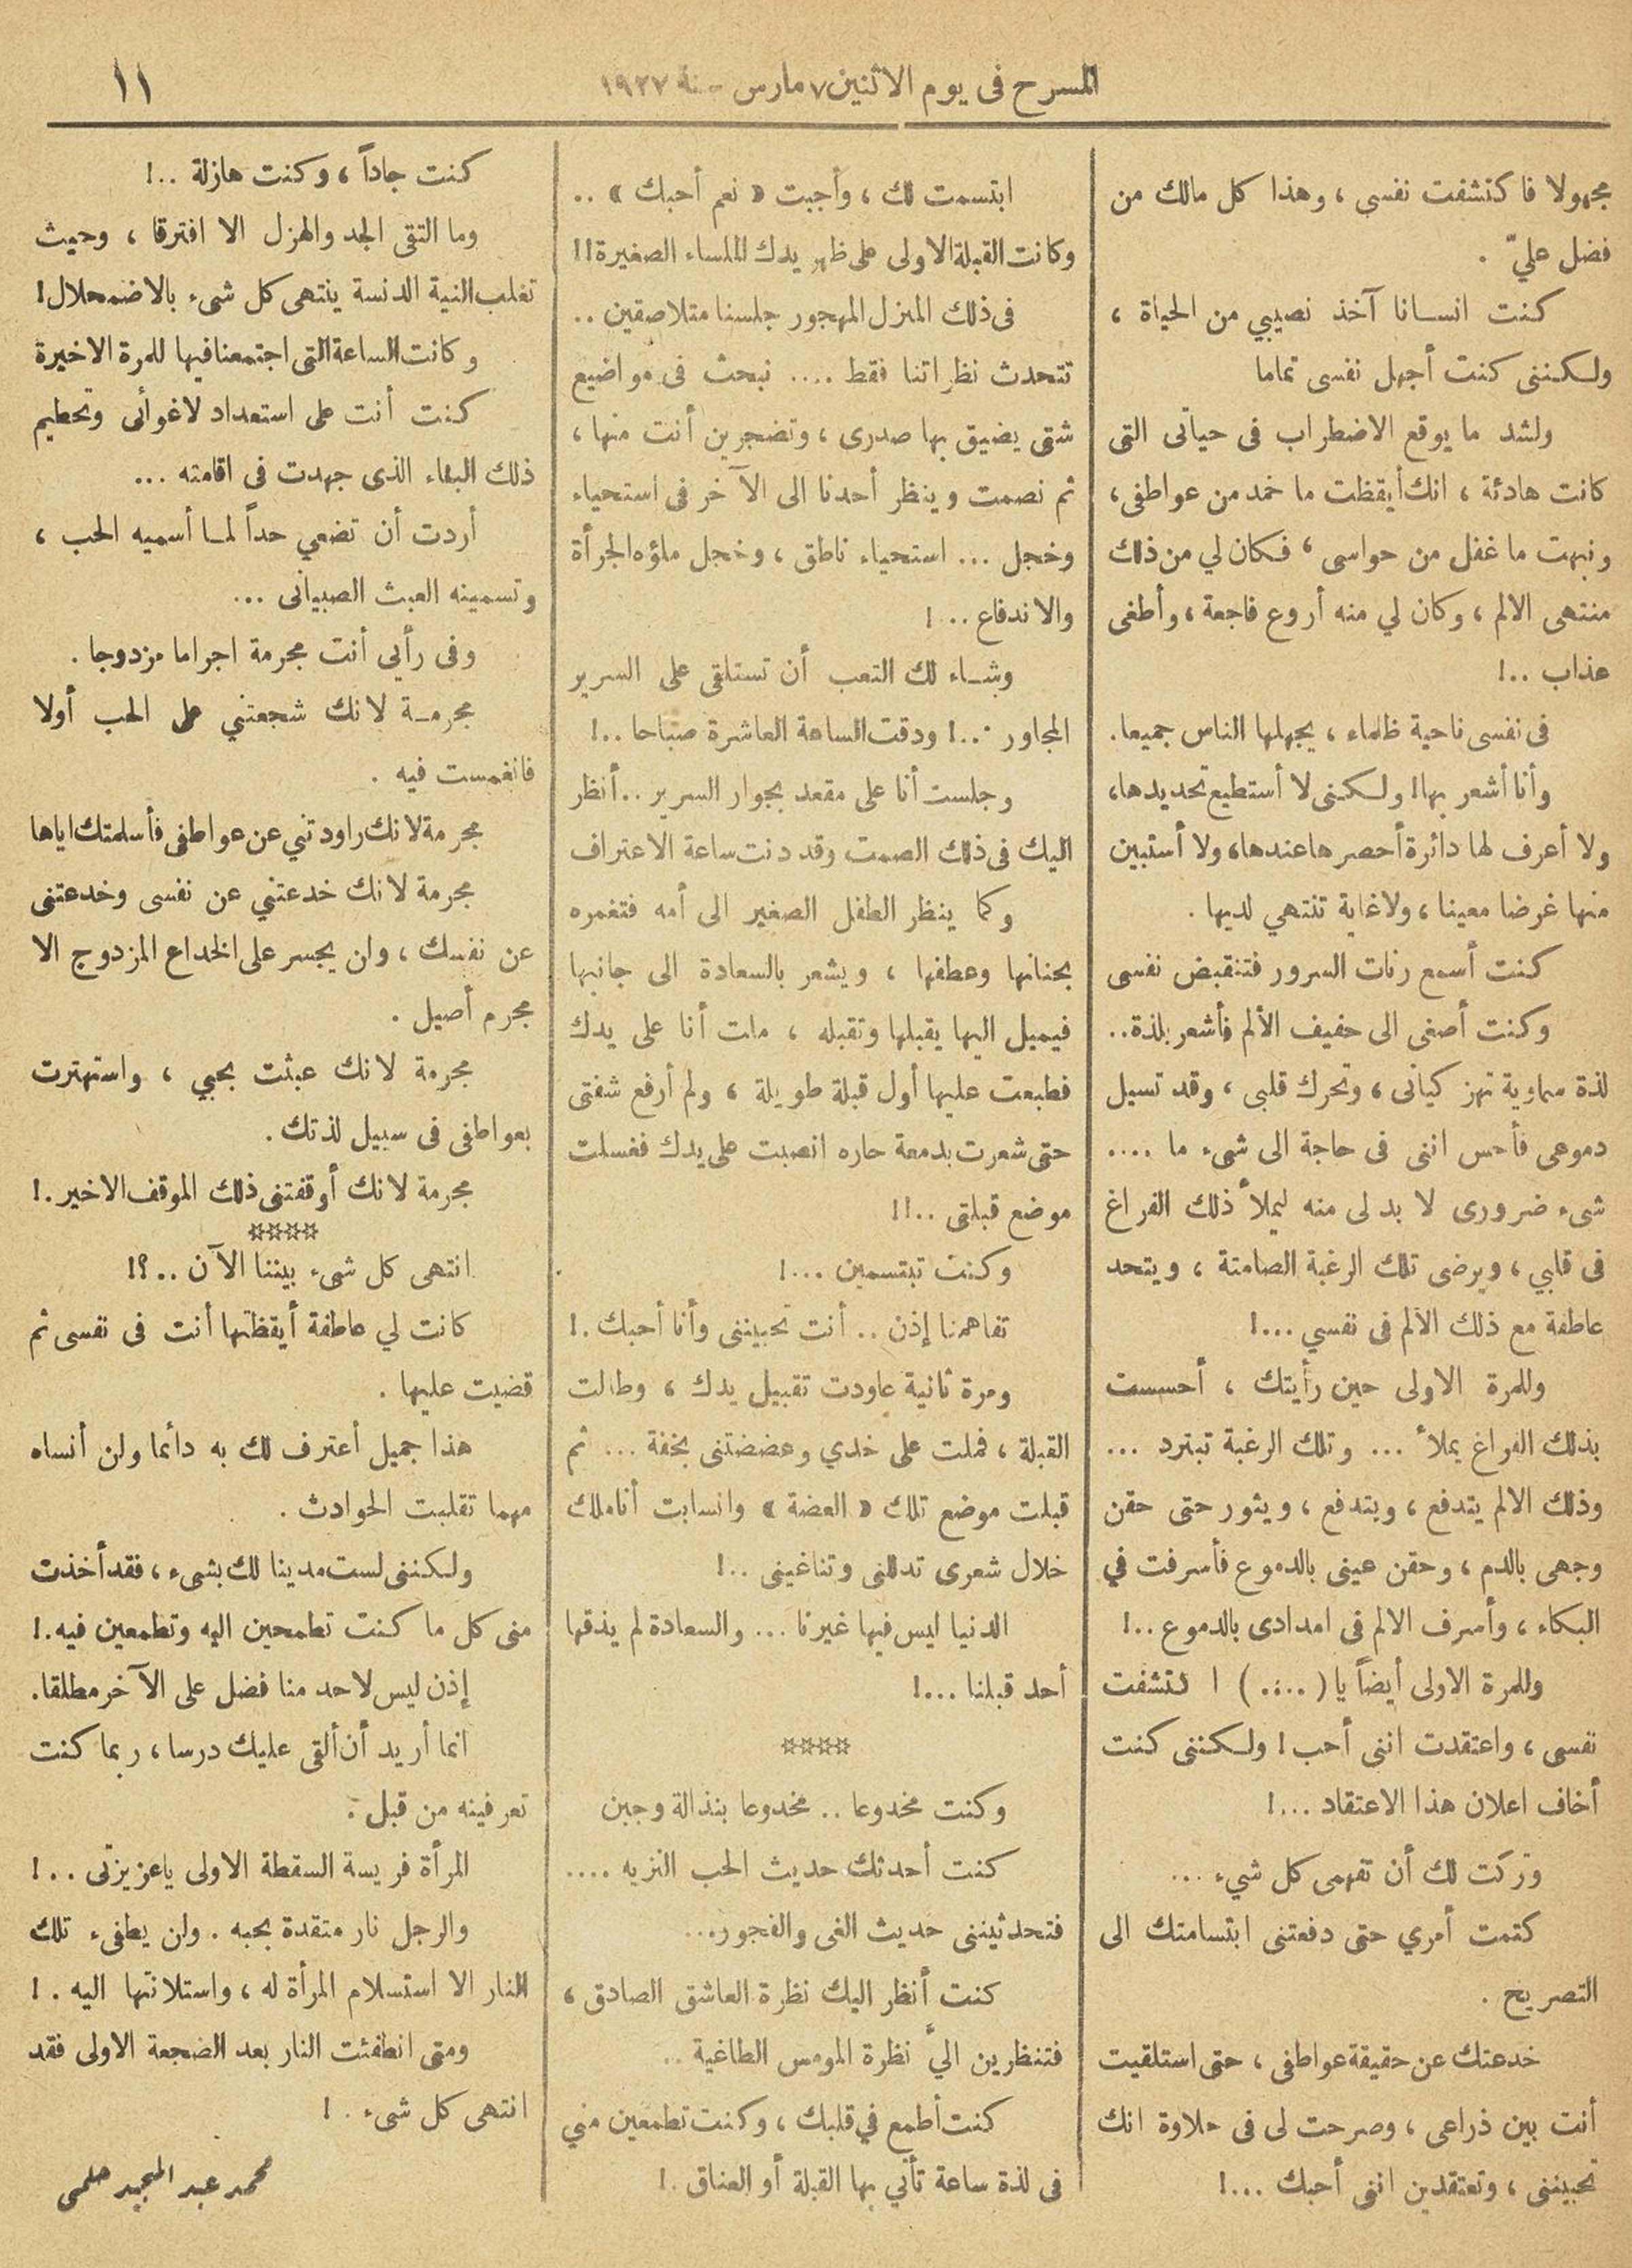 المسرح فى يوم الاثنين ٧ مارس سنة ١٩٢٧
١١
مجهولا فاكتشفت نفسى ، وهذا كل مالك من
فضل عليّ .
كنت انسانا آخذ نصيبي من الحياة ،
ولكننى كنت أجهل نفسى تماما
ولشد ما يوقع الاضطراب فى حياتى التى
كانت هادئة ، انك أيقظت ما خمد من عواطفى ،
ونبهت ما غفل من حواسى ، فكان لي من ذلك
منتهى الالم ، وكان لي منه أروع فاجعة ، وأطغى
عذاب ..!
فى نفسى ناحية ظلماء ، يجهلها الناس جميعا .
وأنا أشعر بها! ولكنى لا أستطيع تحديدها ،
ولا أعرف لها دائرة أحصرها عندها ، ولا أستبين
منها غرضا معينا ، ولا غاية تنتهي لديها .
كنت أسمع رنات السرور فتنقبض نفسى
وكنت أصغى الى حفيف الألم فأشعر بلذة ..
لذة سماوية تهز كيانى ، وتحرك قلبى ، وقد تسيل
دموعى فأحس اننى فى حاجة الى شىء ما ....
شىء ضرورى لا بد لى منه ليملأ ذلك الفراغ
فى قلبي ، ويرضى تلك الرغبة الصامتة ، ويتحد
عاطفة مع ذلك الالم فى نفسي ...!
وللمرة الاولى حين رأيتك ، أحسست
بذلك الفراغ يملأ ... وتلك الرغبة تبترد ...
وذلك الالم يتدفع ، ويتدفع ، ويثور حتى حقن
وجهى بالدم ، وحقن عينى بالدموع فأسرفت في
البكاء ، وأسرف الالم فى امدادى بالدموع ..!
وللمرة الاولى أيضاً يا ( ..... ) اكتشفت
نفسى ، واعتقدت اننى أحب ! ولكننى كنت
أخاف اعلان هذا الاعتقاد ...!
وتركت لك أن تفهمى كل شيء ...
كتمت أمري حتى دفعتنى ابتسامتك الى
التصريح .
خدعتك عن حقيقة عواطفى ، حتى استلقيت
أنت بين ذراعى ، وصرحت لى فى حلاوة انك
تحبيننى ، وتعتقدين اننى أحبك ...!
ابتسمت لك ، وأجبت « نعم أحبك » ..
وكانت القبلة الاولى على ظهر يدك الملساء الصغيرة !!
فى ذلك المنزل المهجور جلسنا متلاصقين ..
تتحدث نظراتنا فقط .... نبحث فى مواضيع
شتى يضيق بها صدرى ، وتضجرين أنت منها ،
ثم نصمت وينظر أحدنا الى الآخر فى استحياء
وخجل ... استحياء ناطق ، وخجل ملؤه الجرأة
والاندفاع ..!
وشاء لك التعب أن تستلقى على السرير
المجاور ...! ودقت الساعة العاشرة صباحا ..!
وجلست أنا على مقعد بجوار السرير .. أنظر
اليك فى ذلك الصمت وقد دنت ساعة الاعتراف
وكما ينظر الطفل الصغير الى أمه فتغمره
بحنانها وعطفها ، ويشعر بالسعادة الى جانبها
فيميل اليها يقبلها وتقبله ، ملت أنا على يدك
فطبعت عليها أول قبلة طويلة ، ولم أرفع شفتى
حتى شعرت بدمعة حاره انصبت على يدك فغسلت
موضع قبلتى ..!!
وكنت تبتسمين ...!
تفاهمنا إذن .. أنت تحبيننى وأنا أحبك .!
ومرة ثانية عاودت تقبيل يدك ، وطالت
القبلة ، فملت على خدي وعضضتنى بخفة ... ثم
قبلت موضع تلك « العضة » وانسابت أناملك
خلال شعرى تدللنى وتناغينى ..!
الدنيا ليس فيها غيرنا ... والسعادة لم يذقها
أحد قبلنا ...!
☆☆☆☆
وكنت مخدوعا .. مخدوعا بنذالة وجبن
كنت أحدثك حديث الحب النزيه ....
فتحدثيننى حديث الغى والفجور ...
كنت أنظر اليك نظرة العاشق الصادق ،
فتنظرين اليّ نظرة المومس الطاغية ..
كنت أطمع في قلبك ، وكنت تطمعين مني
فى لذة ساعة تأتي بها القبلة أو العناق .!
كنت جاداً ، وكنت هازلة ..!
وما التقى الجد والهزل الا افترقا ، وحيث
تغلب النية الدنسة ينتهى كل شىء بالاضمحلال !
وكانت الساعة التى اجتمعنا فيها للمرة الاخيرة
كنت أنت على استعداد لاغوائى وتحطيم
ذلك البناء الذى جهدت فى اقامته ...
أردت أن تضعي حداً لما أسميه الحب ،
وتسمينه العبث الصبيانى ...
وفى رأيي أنت مجرمة اجراما مزدوجا .
مجرمة لانك شجعتني على الحب أولا
فانغمست فيه .
مجرمة لانك راودتني عن عواطفى فأسلمتك اياها
مجرمة لانك خدعتني عن نفسى وخدعتنى
عن نفسك ، ولن يجسر على الخداع المزدوج الا
مجرم أصيل .
مجرمة لانك عبثت بحبي ، واستهترت
بعواطفى فى سبيل لذتك .
مجرمة لانك أوقفتنى ذلك الموقف الاخير .!
☆☆☆☆
انتهى كل شىء بيننا الآن ..؟!
كانت لي عاطفة أيقظتها أنت فى نفسى ثم
قضيت عليها .
هذا جميل أعترف لك به دأئما ولن أنساه
مهما تقلبت الحوادث .
ولكننى لست مدينا لك بشىء ، فقد أخذت
منى كل ما كنت تطمحين اليه وتطمعين فيه .!
إذن ليس لاحد منا فضل على الآخر مطلقا .
انما أريد أن ألقى عليك درسا ، ربما كنت
تعرفينه من قبل .
المرأة فريسة السقطة الاولى ياعزيزتى ..!
والرجل نار متقدة بحبه . ولن يطفىء تلك
النار الا استسلام المرأة له ، واستلانتها اليه .!
ومتى انطفئت النار بعد الضجعة الاولى فقد
انتهى كل شىء .!
محمد عبد المجيد حلمى